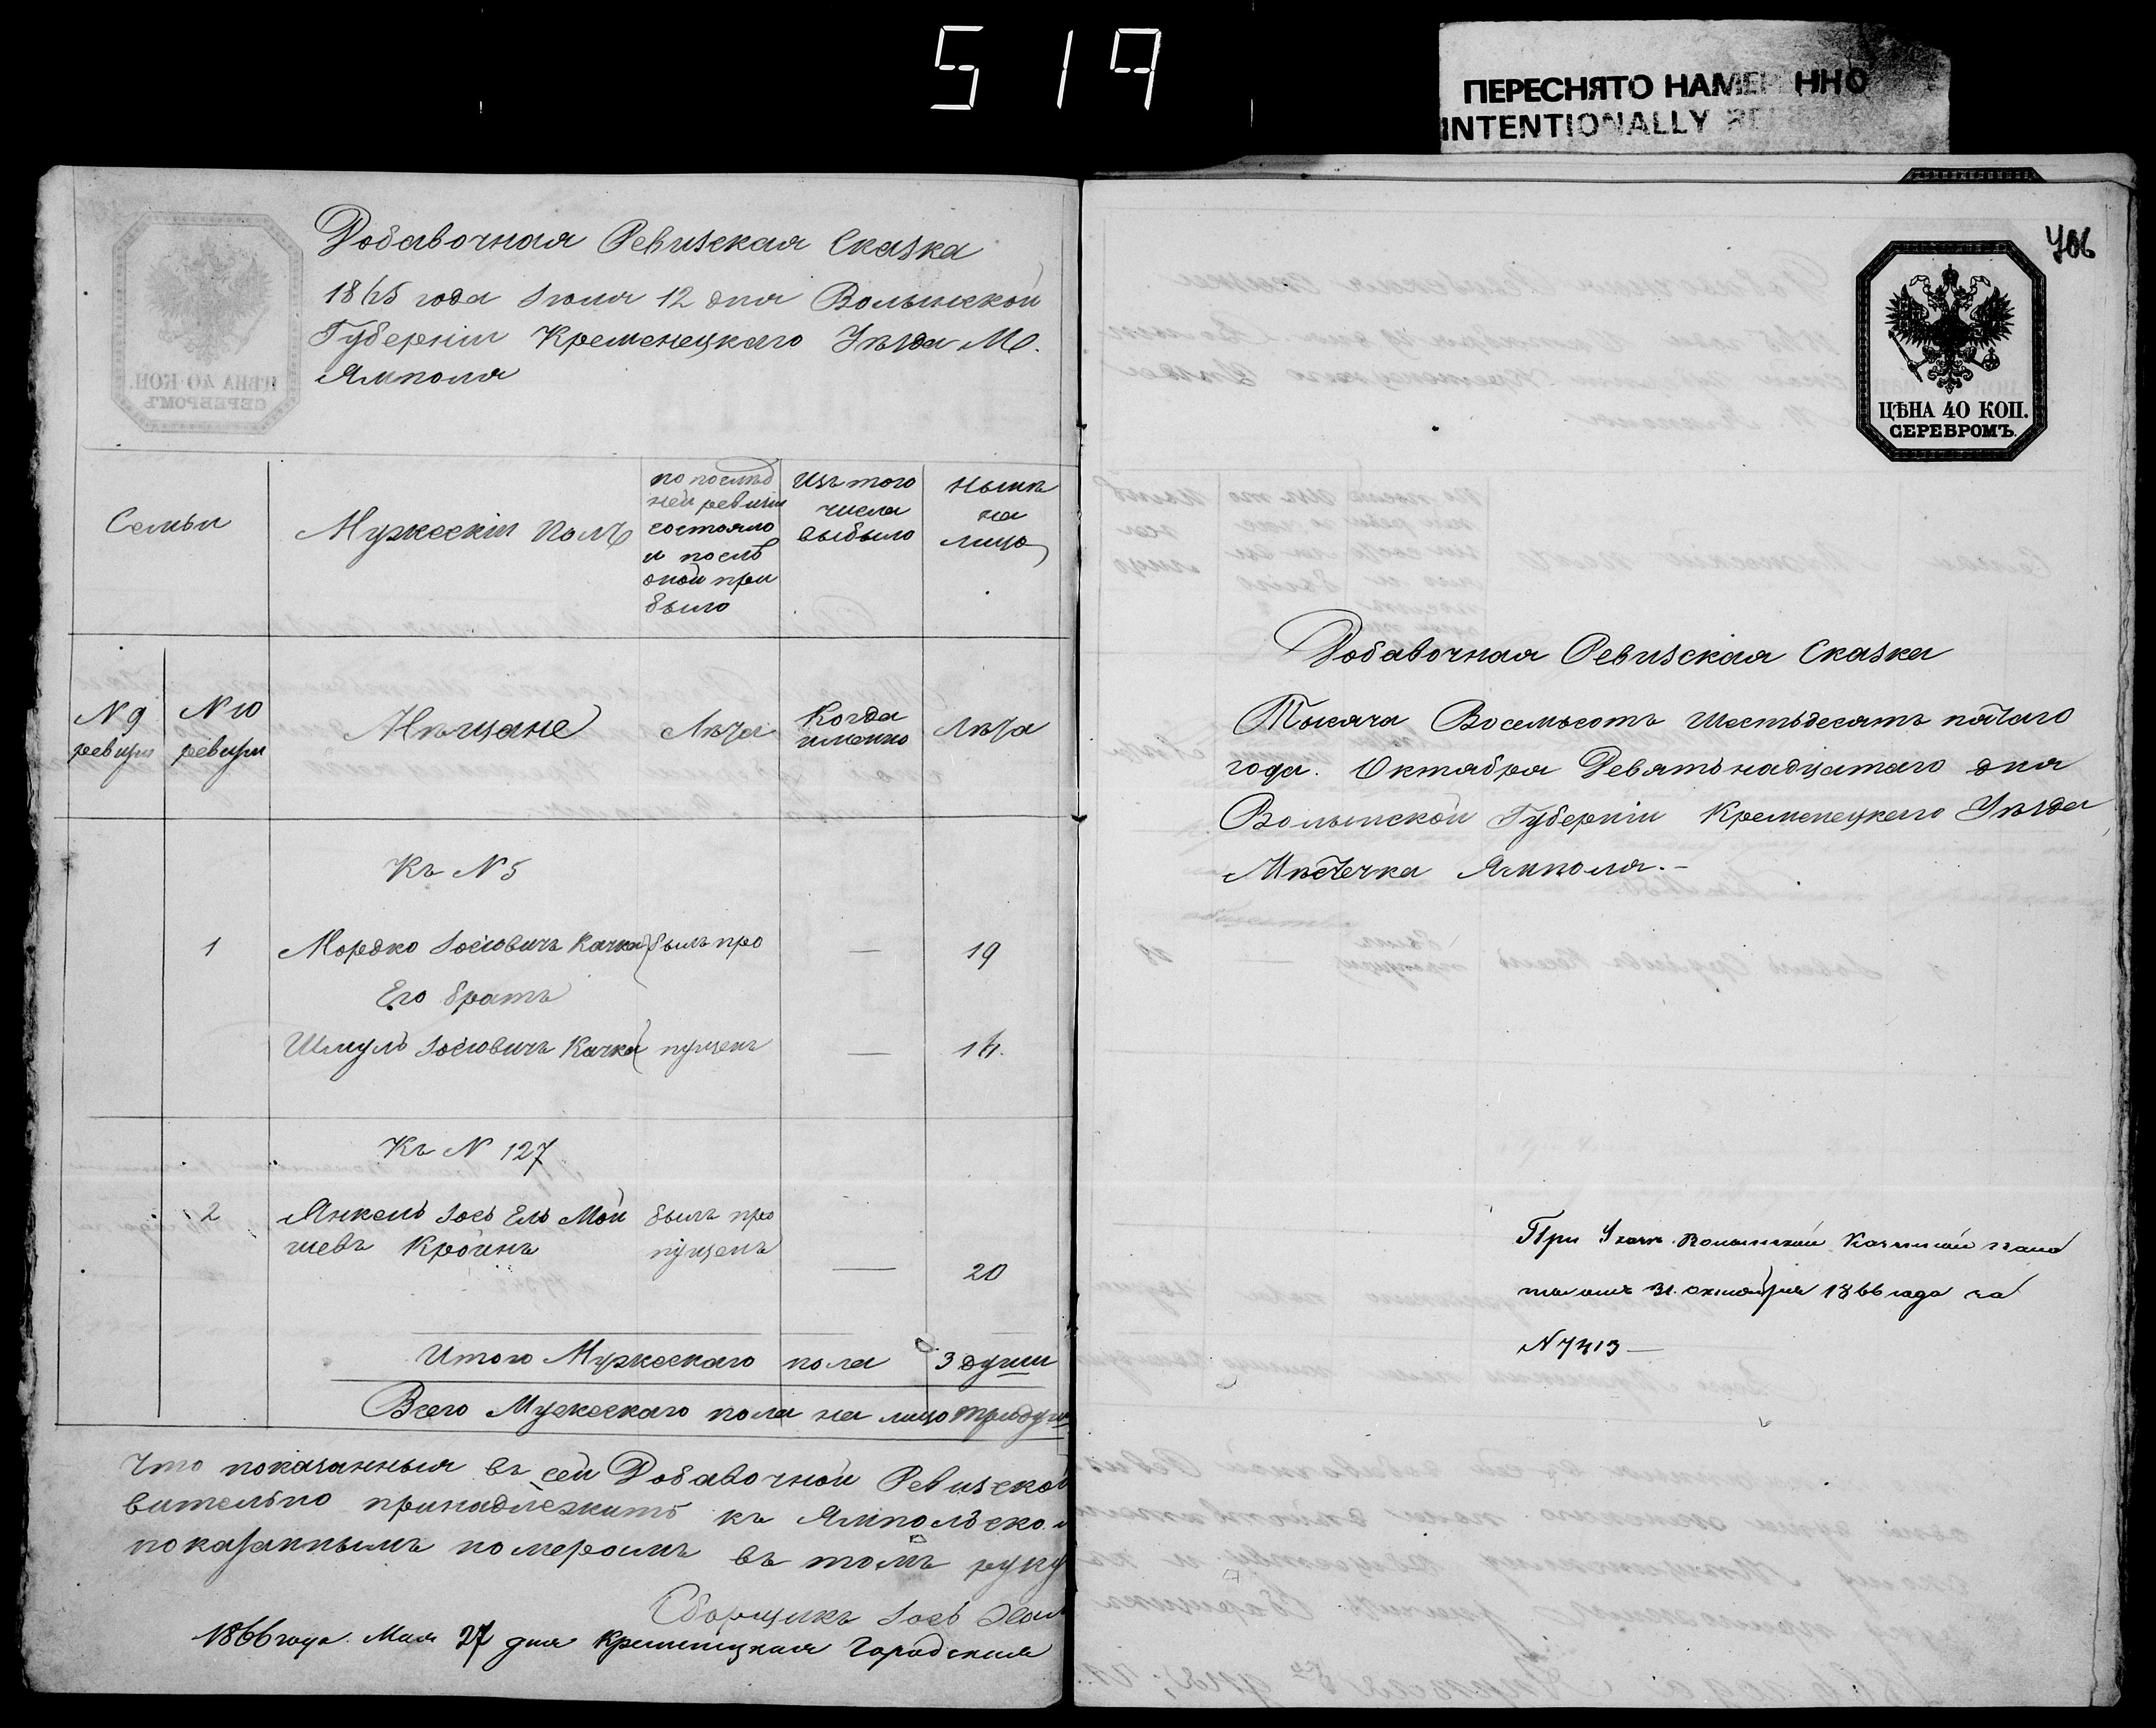 519
ПЕРЕСНЯТО НАМЕ ННО
INTENTIONALLY
Добавочная Ревизская Сказка
1865 года Iюля 12 дня Волынской
Губернiи Кременецкаго Уѣзда М.
Ямполя
ЦѢНА 40 КОП.
СЕРЕБРОМЪ
Семьи
Мужескiй Полъ
по послѣд
ней ревизiи
состояло
и послѣ
оной при
было
Изъ того
числа
выбыло
Нынѣ
на
лицо
N 9
ревизiи
N 10
ревизiи
Мѣщане
Лѣта
Когда
именно
Лѣта
Къ N 5
1 Мордко Iосiовичъ Качка былъ про — 19
Его братъ
Шмуль Iосiовичъ Качка пущенъ — 14.
Къ N 127
2 Янкель Iось Ель Мой былъ про
шевъ Кройнъ пущенъ — 20
Итого Мужескаго пола 3 души
Всего Мужескаго пола на лицо три души
Что показанныя въ сей Добавочной Ревизской
вительно принадлежитъ къ Ямпольско
показаннымъ номерамъ въ томъ руку
Сборщикъ Iось
1866 года Мая 27 дня Кременецкая Городская
706
ЦѢНА 40 КОП.
СЕРЕБРОМЪ.
Добавочная Ревизская Сказка
Тысяча Восемьсотъ шестьдесятъ пятаго
года. Октября Девятьнадцатаго дня
Волынской Губернiи Кременецкаго Уѣзда
Мѣстечка Ямполя.—
При Указѣ Волынской Казенной пала
ты отъ 31 октября 1866 года за
N 7413—